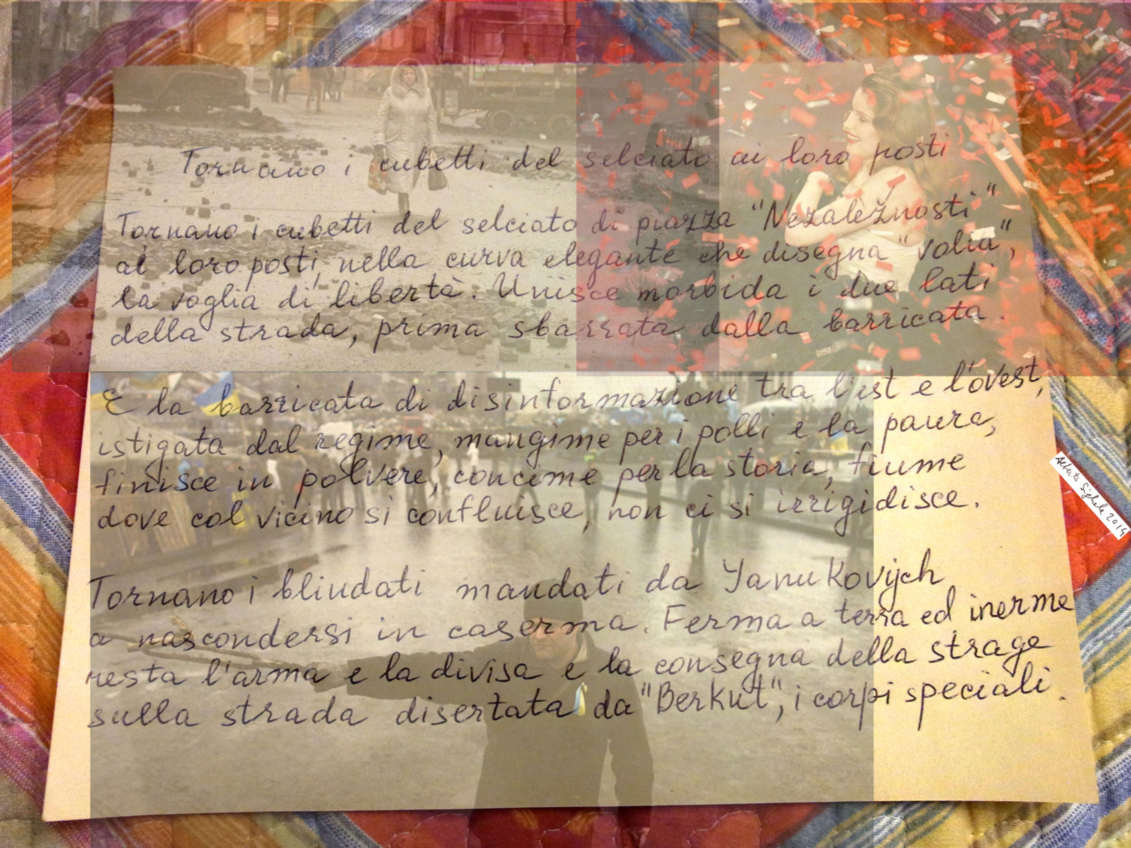 Tornano i cubetti del selciato ai loro posti
Tornano i cubetti del selciato di piazza "Nezaležnosti"
ai loro posti, nella curva elegante che disegna "volia",
la voglia di libertà. Unisce morbida i due lati
della strada, prima sbarrata dalla barricata.
E la barricata di disinformazione tra l'est e l'ovest,
istigata dal regime, mangime per i polli e la paura,
finisce in polvere, concime per la storia, fiume
dove col vicino si confluisce, non ci si irrigidisce.
Tornano i blindati mandati da Yanukovych
a nascondersi in caserma. Ferma a terra ed inerme
resta l'arma e la divisa e la consegna della strage
sulla strada disertata da "Berkut", i corpi speciali.
2014